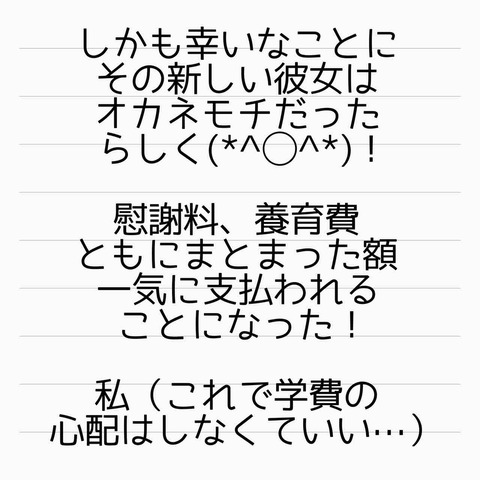 しかも幸いなことに
その新しい彼女は
オカネモチだった
らしく(*^◯^*)！
慰謝料、養育費
ともにまとまった額
一気に支払われる
ことになった！
私（これで学費の
心配はしなくていい…）